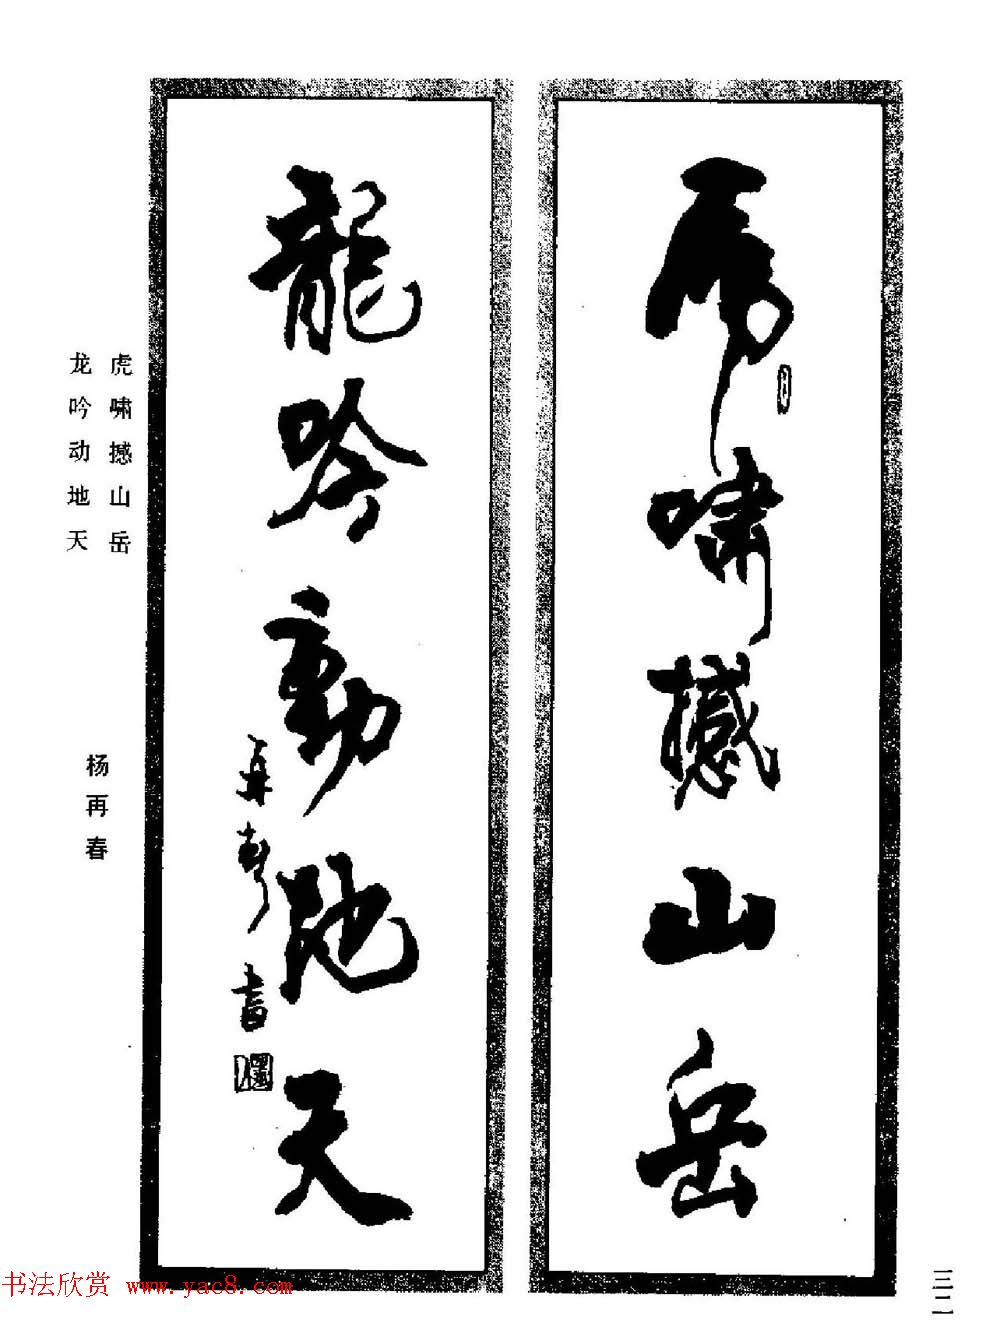 虎嘯撼山岳
龍吟動地天
再春書
虎啸撼山岳
龙吟动地天
杨再春
三二
书法欣赏 www.yac8.com